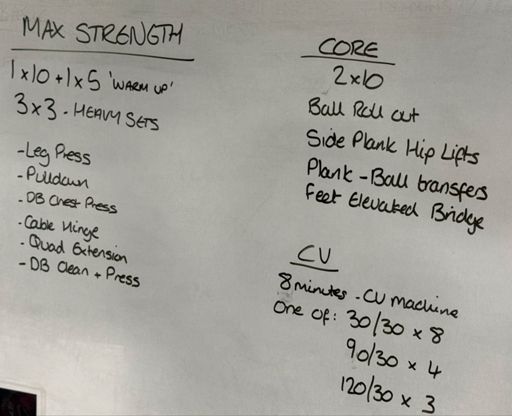 MAX STRENGTH
1x10 + 1x5 'WARM UP'
3x3 - HEAVY SETS
- Leg Press
- Pulldown
- DB Chest Press
- Cable Hinge
- Quad Extension
- DB Clean + Press
CORE
2x10
Ball Roll out
Side Plank Hip Lifts
Plank - Ball transfers
Feet Elevated Bridge
CV
8 minutes - CV machine
One of: 30/30 x 8
90/30 x 4
120/30 x 3